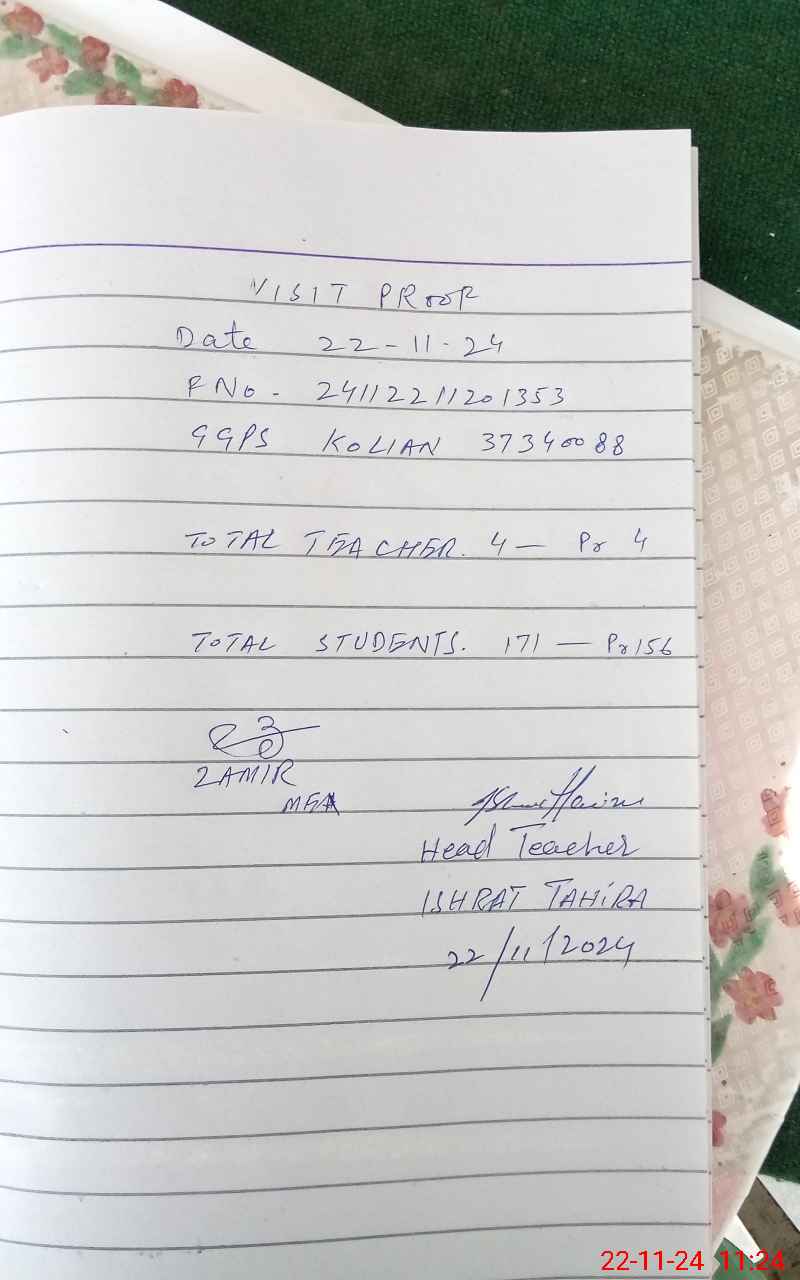 VISIT PROOF
Date 22-11-24
F No. 24112211201353
GGPS KOLIAN 37340088
TOTAL TEACHER. 4 — Pr 4
TOTAL STUDENTS. 171 — Pr 156
ZAMIR
MEA
Head Teacher
ISHRAT TAHIRA
22/11/2024
22-11-24 11:24